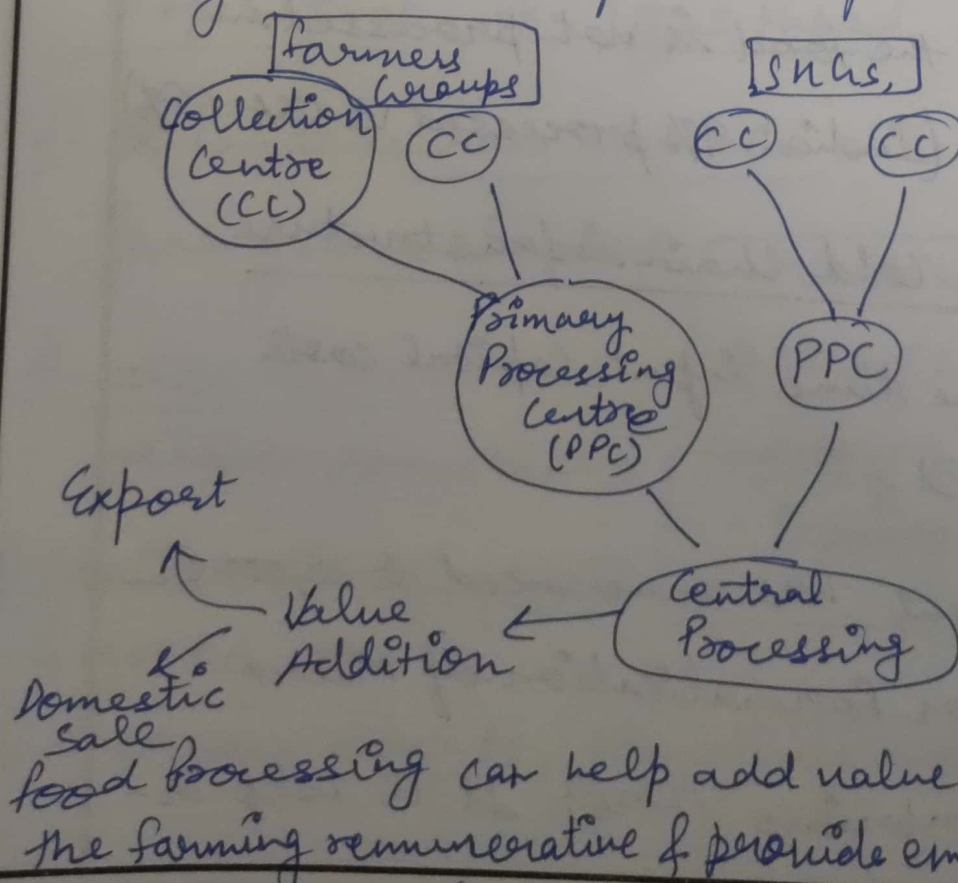 Farmers
Groups
SHGs,
Collection
Centre
(CC)
CC
CC
CC
Primary
Processing
Centre
(PPC)
PPC
Export
Value
Addition
Central
Processing
Domestic
Sale
food Processing can help add value
the farming remunerative & provide em